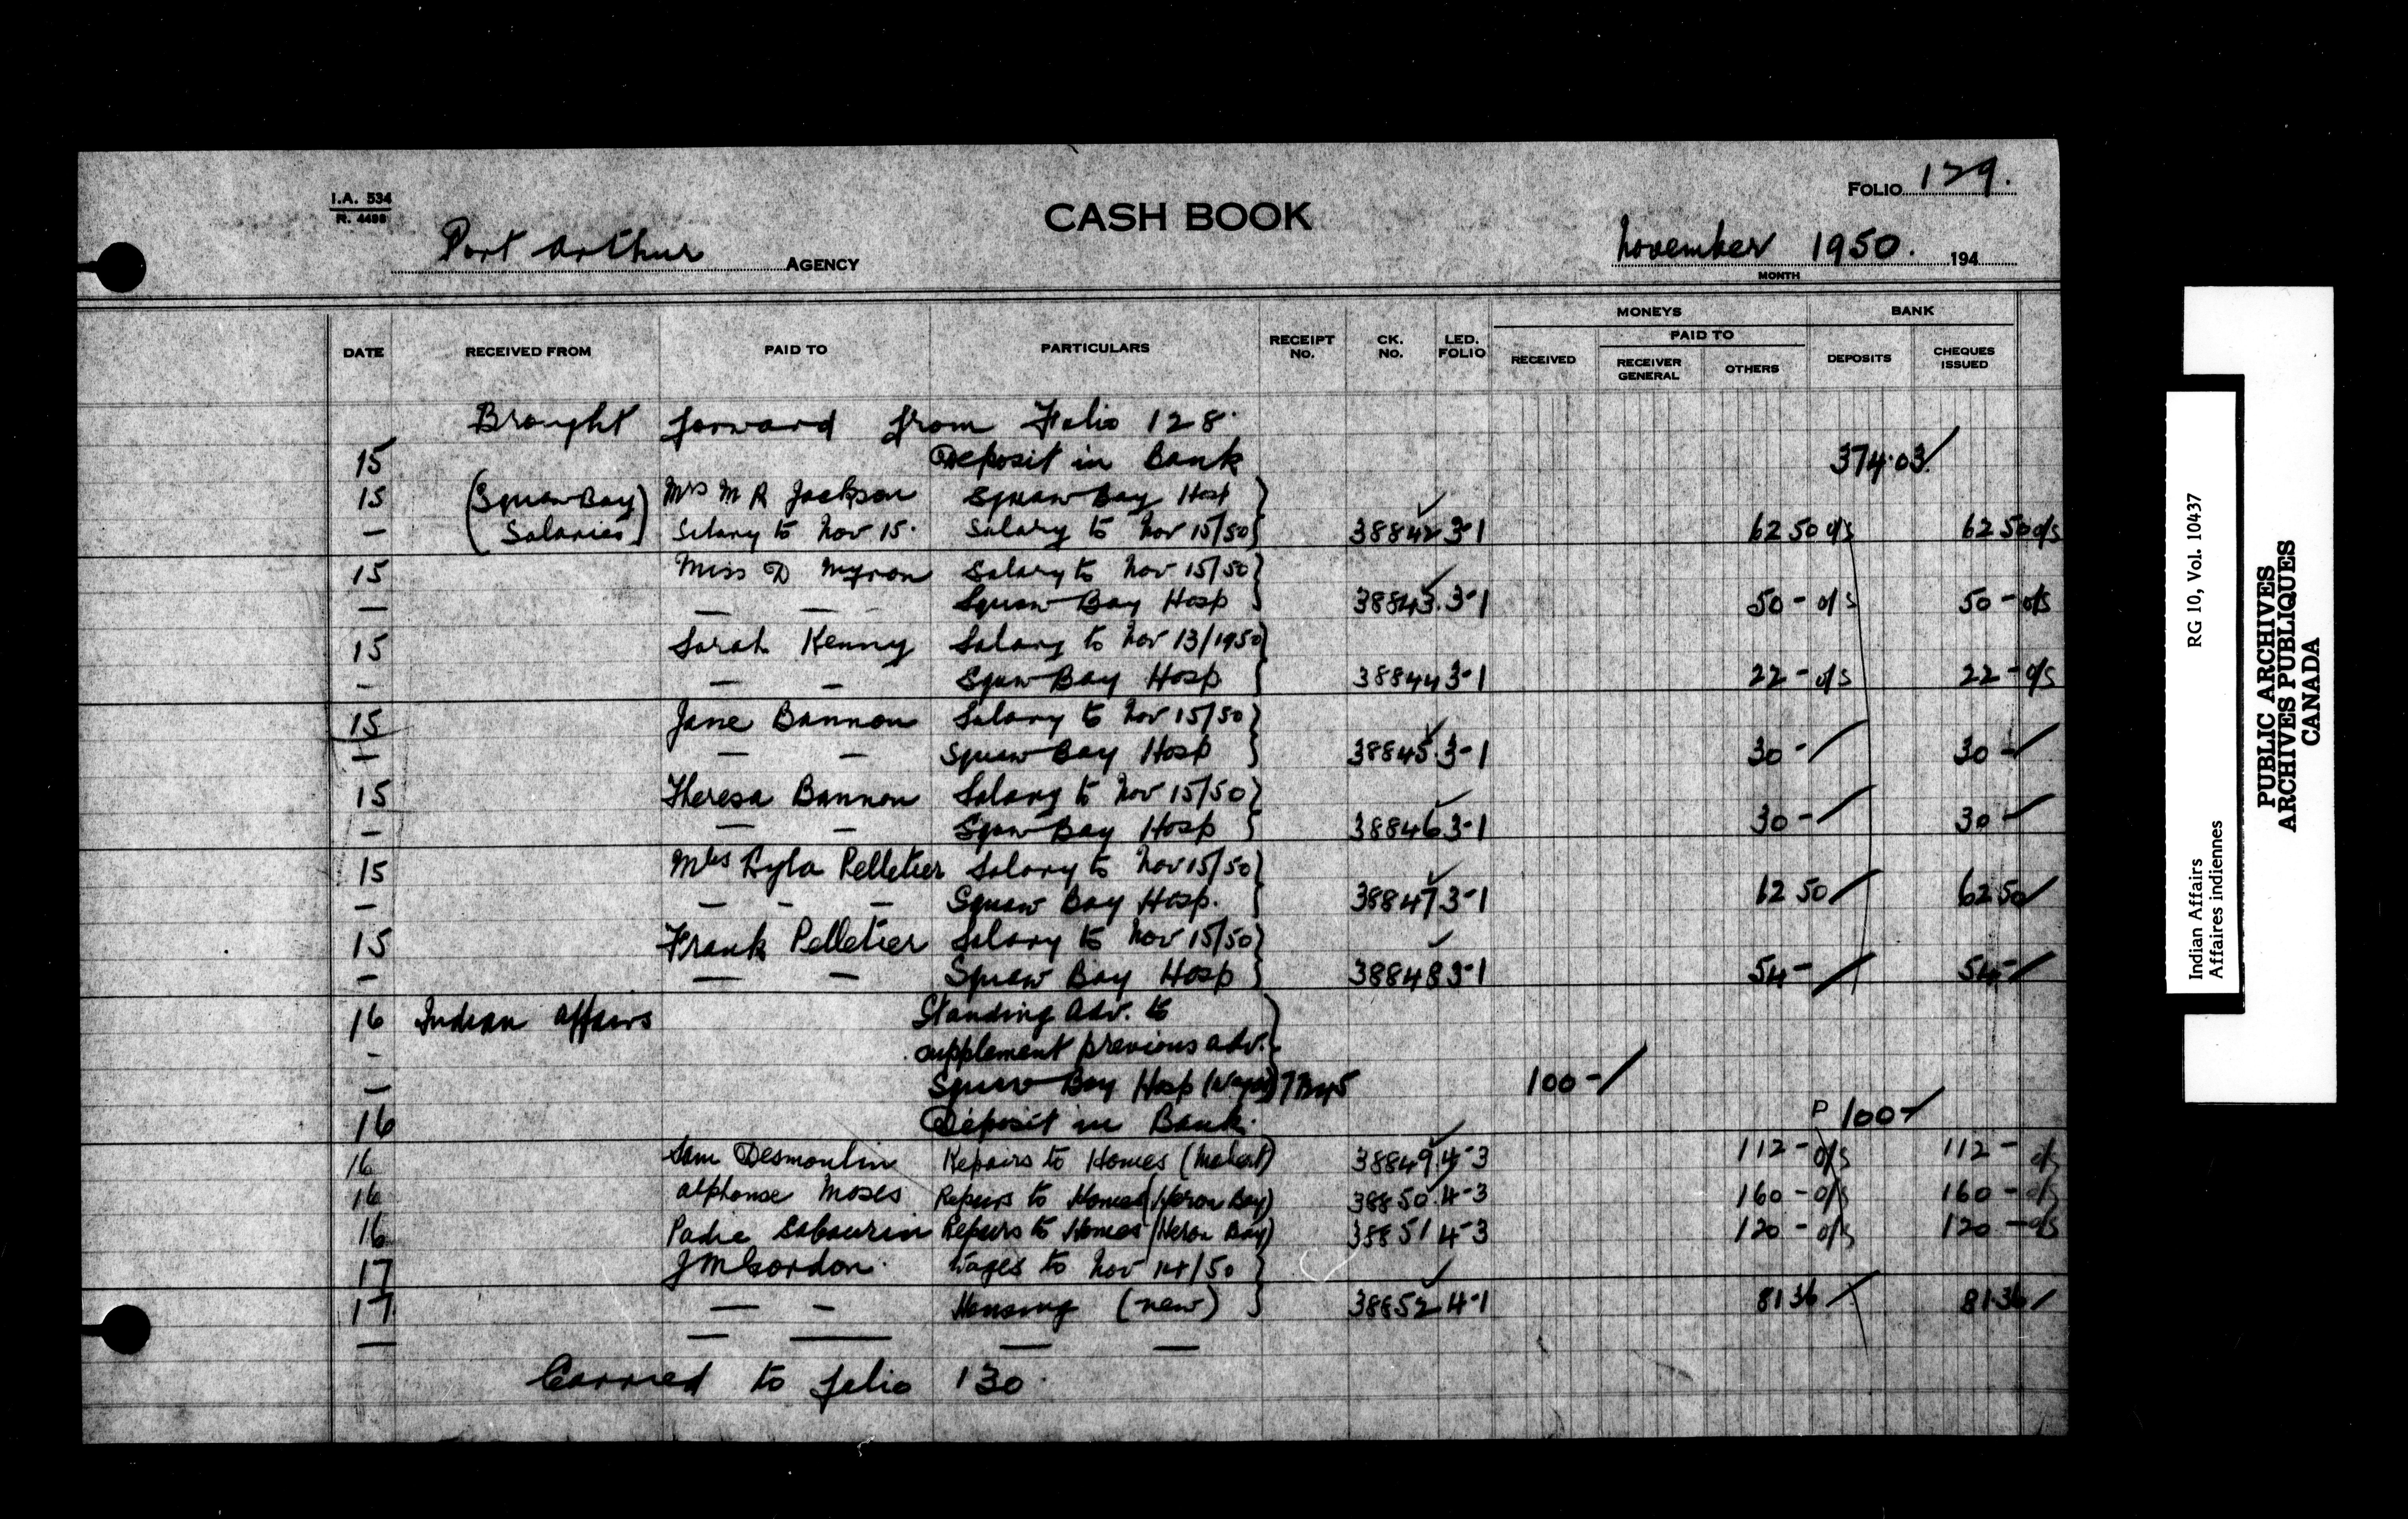 I.A. 534
R. 4488
CASH BOOK
FOLIO 129.
Port Arthur AGENCY
November 1950. 194
MONTH
DATE RECEIVED FROM PAID TO PARTICULARS RECEIPT No. CK. No. LED. FOLIO MONEYS RECEIVED PAID TO RECEIVER GENERAL OTHERS BANK DEPOSITS CHEQUES ISSUED
Brought forward from Folio 128.
15 Deposit in Bank 374.03
15 (Squaw Bay Mrs M R Jackson Squaw Bay Hosp
— Salaries) Salary to Nov 15. Salary to Nov 15/50 38842 3-1 62 50 o/s 62 50 o/s
15 Miss D Myron Salary to Nov 15/50
— — — Squaw Bay Hosp 38843. 3-1 50 - o/s 50 - o/s
15 Sarah Kenny Salary to Nov 13/1950
— — — Squaw Bay Hosp 38844 3-1 22 - o/s 22 - o/s
15 Jane Bannon Salary to Nov 15/50
— — — Squaw Bay Hosp 38845. 3-1 30 - 30 -
15 Theresa Bannon Salary to Nov 15/50
— — — Squaw Bay Hosp 38846 3-1 30 - 30 -
15 Mrs Lyla Pelletier Salary to Nov 15/50
— — — — Squaw Bay Hosp. 38847 3-1 62 50 62 50
15 Frank Pelletier Salary to Nov 15/50
— — — Squaw Bay Hosp 38848 3-1 54 - 54 -
16 Indian Affairs Standing Adv. to
— supplement previous adv.
— Squaw Bay Hosp (Wages) 100 -
16 Deposit in Bank. P 100 -
16 Sam Desmoulin Repairs to Homes (Mobert) 38849. 4-3 112 - o/s 112 - o/s
16 Alphonse Moses Repairs to Homes (Heron Bay) 38850. 4-3 160 - o/s 160 - o/s
16 Padie Sabourin Repairs to Homes (Heron Bay) 38851 4-3 120 - o/s 120 - o/s
17 J M Gordon. Wages to Nov 14/50
17 — — Housing (new) 38852 4-1 81 36 81 36
— — — — —
Carried to folio 130.
Indian Affairs RG 10, Vol. 10437
Affaires indiennes
PUBLIC ARCHIVES
ARCHIVES PUBLIQUES
CANADA